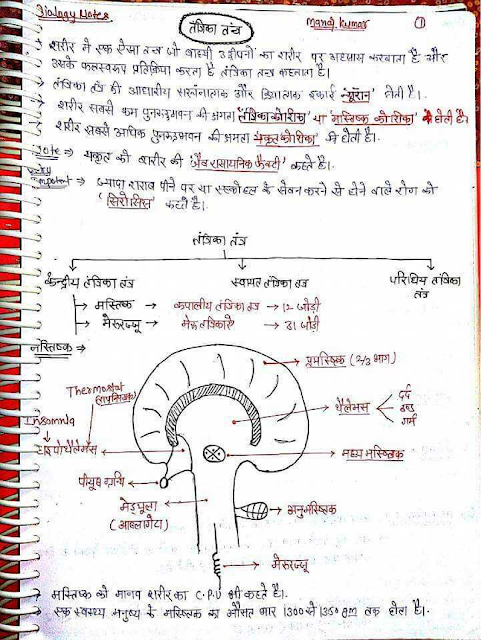 Biology Notes
Manoj Kumar
1
तंत्रिका तंत्र
→ शरीर में एक ऐसा तन्त्र जो बाहरी उद्दीपनों का शरीर पर करवाता है और
उसके फलस्वरूप प्रतिक्रिया करता है तंत्रिका तन्त्र कहलाता है।
→ तंत्रिका तन्त्र की आधारीय संरचनात्मक और क्रियात्मक इकाई 'न्यूरॉन' होती है।
→ शरीर सबसे कम पुनरुदभवन की क्षमता 'तंत्रिका कोशिका' या 'मस्तिष्क कोशिका' में होती है।
→ शरीर सबसे अधिक पुनरुदभवन की क्षमता 'यकृत कोशिका' में होती है।
Note ⇒ यकृत को शरीर की 'जैव रासायनिक फैक्ट्री' कहते है।
⇒ ज्यादा शराब पीने पर या एल्कोहल के सेवन करने से होने वाले रोग को
'सिरोसिस' कहते है।
तंत्रिका तंत्र
केन्द्रीय तंत्रिका तंत्र
स्वायत तंत्रिका तंत्र
परिधिय तंत्रिका
तंत्र
→ मस्तिष्क → कपालीय तंत्रिका तंत्र → 12 जोड़ी
→ मेरूरज्जू → मेरू तंत्रिकाऐं → 31 जोड़ी
मस्तिष्क ⇒
प्रमस्तिष्क (2/3 भाग)
Thermostat
Insomnia
थैलेमस
दर्द
ठण्ड
गर्म
हाइपोथैलेमस
मध्य मस्तिष्क
पीयूष ग्रन्थि
मेड्यूला
(आब्लांगेटा)
अनुमस्तिष्क
मेरूरज्जू
→ मस्तिष्क को मानव शरीर का C.P.U भी कहते है।
→ एक स्वस्थ्य मनुष्य के मस्तिष्क का औसत भार 1300 से 1350 gm तक होता है।